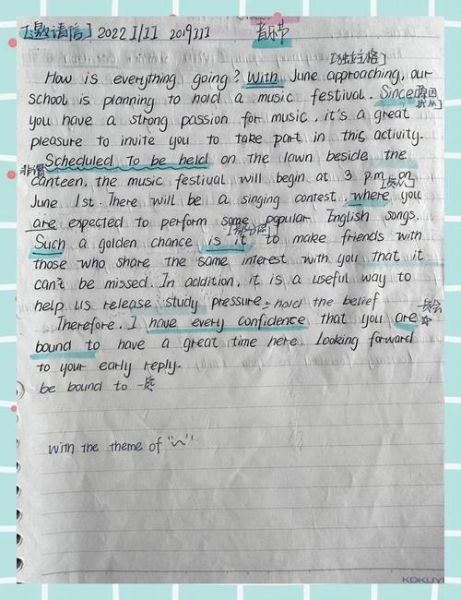 [邀请信] 2022 I/II 2019III 音乐节
[独立主格]
How is everything going? With June approaching, our
school is planning to hold a music festival. Since
you have a strong passion for music, it's a great
pleasure to invite you to take part in this activity.
Scheduled to be held on the lawn beside the
非谓
canteen, the music festival will begin at 3 p.m. on
June 1st. There will be a singing contest, where you
are expected to perform some popular English songs.
Such a golden chance is it to make friends with
those who share the same interest with you that it
can't be missed. In addition, it is a useful way to
help us release study pressure. hold the belief
Therefore, I have every confidence that you are
bound to have a great time here. Looking forward
to your early reply.
be bound to
with the theme of "~"
KOKUYO